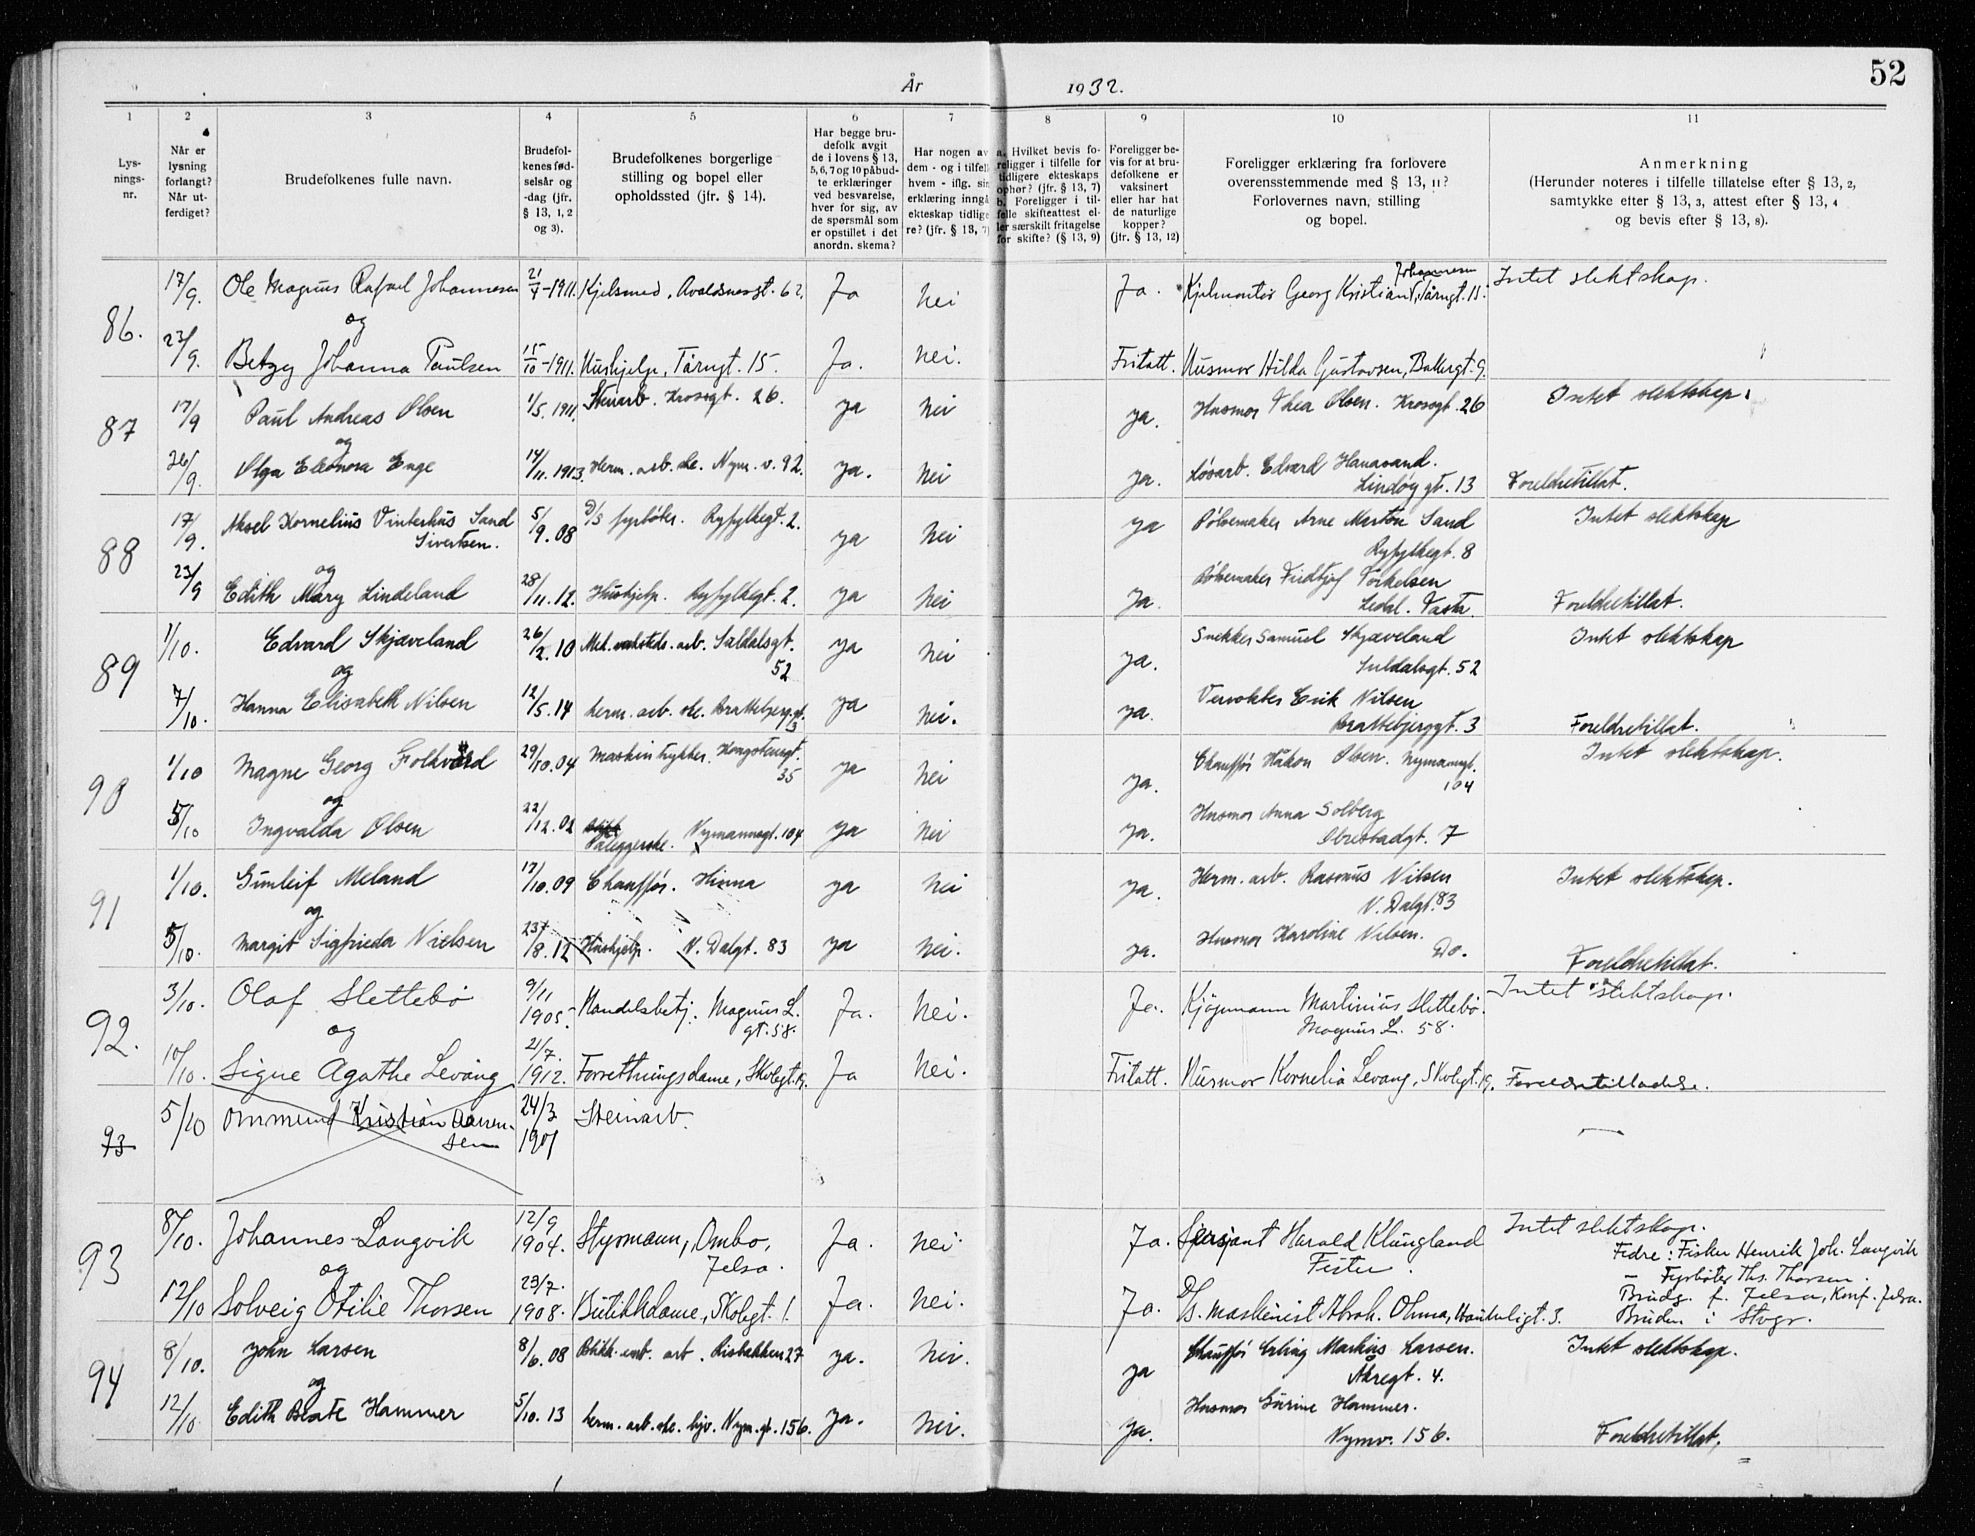 52
År 1932.
1 2 3 4 5 6 7 8 9 10 11
Lysningsnr.
Når er lysning forlangt? Når utferdiget?
Brudefolkenes fulle navn.
Brudefolkenes fødselsår og -dag (jfr. § 13, 1, 2 og 3).
Brudefolkenes borgerlige stilling og bopel eller opholdssted (jfr. § 14).
Har begge brudefolk avgit de i lovens § 13, 5, 6, 7 og 10 påbudte erklæringer ved besvarelse, hver for sig, av de spørsmål som er opstillet i det anordn. skema?
Har nogen av dem - og i tilfelle hvem - iflg. sin erklæring inngå ekteskap tidligere? (jfr. § 13, 7)
a. Hvilket bevis foreligger i tilfelle for tidligere ekteskaps ophør? (jfr. § 13, 7) b. Foreligger i tilfelle skifteattest eller særskilt fritagelse for skifte? (§ 13, 9)
Foreligger bevis for at brudefolkene er vaksinert eller har hat de naturlige kopper? (jfr. § 13, 12)
Foreligger erklæring fra forlovere overensstemmende med § 13, 11? Forlovernes navn, stilling og bopel.
Anmerkning (Herunder noteres i tilfelle tillatelse efter § 13, 2, samtykke efter § 13, 3, attest efter § 13, 4 og bevis efter § 13, 8).
86. 17/9. Ole Magnus Rafael Johannesen 21/4-1911. Kjelsmed, Avaldsnesgt. 62. Ja nei Ja. Kjelmontør Georg Kristian Johannesen, Tårngt. 15. Intet slektskap.
og
23/9. Betzy Johanna Paulsen 15/10-1911. Hushjelp, Tårngt. 15. Ja. nei. Fritatt. Husmor Hilda Gustavsen, Bakergt. 9.
87 17/9 Paul Andreas Olsen 1/5. 1911. Stenarb. Krossgt. 26. ja nei ja. Husmor Thea Olsen. Krossgt. 26 Intet slektskap.
og
26/9. Olga Eleonora Enge 14/11. 1913. Herm. arb. ske. Nym. v. 92. ja. nei ja. Løsarb. Edvard Hanasand.
Lindøygt. 13 Foreldretillat.
88 17/9. Aksel Kornelius Vinterhus Sand
Sivertsen. 5/9. 08 D/S fyrbøter. Ryfylkegt. 2. ja nei ja Pølsemaker Arne Martin Sand
Ryfylkegt. 8 Intet slektskap
og
23/9 Edith Mary Lindeland 28/11. 12. Hushjelp. Ryfylkegt. 2. ja nei ja. Pølsemaker Fridtjof Torkelsen
Ledal. Tasta Foreldretillat.
89 1/10. Edvard Skjæveland 26/2. 10 Mek. verksteds. arb. Suldalsgt.
52 ja nei ja. Snekker Samuel Skjæveland
Suldalsgt. 52 Intet slektskap
og
7/10. Hanna Elisabeth Nilsen 12/5. 14 herm. arb. ske. Brattebjerg. gt.
3 ja nei. ja. Erik Nilsen
Brattebjerggt. 3 Foreldretillat.
90 1/10 Magne Georg Folkvord 29/10. 04 Maskintrykker. Kongstensgt.
35 ja nei ja. Chauffør Håkon Olsen. Nymannsgt.
104 Intet slektskap.
og
5/10 Ingvalda Olsen 22/12. 02 Påleggerske. Nymannsgt. 104 ja nei ja. Husmor Anna Solberg
Obrestadgt. 7
91 1/10. Gunleif Meland 17/10. 09 Chauffør. Hinna ja nei ja. Herm. arb. Rasmus Nilsen
N. Dalgt. 83 Intet slektskap.
og
5/10. Margit Sigfrieda Nielsen 23/8. 12 Hushjelp. N. Dalgt. 83 ja nei. ja. Husmor Karoline Nilsen.
Do. Foreldretillat.
92. 3/10. Olaf Slettebø 9/11 1905. Handelsbetj. Magnus L.
gt. 58. Ja. nei. Ja. Kjøpmann Martinius Slettebø.
Magnus L. 58. Intet slektskap.
og
10/10. Signe Agathe Levang 21/7. 1912. Forretningsdame, Skolegt. 19. Ja nei. Fritatt. Husmor Kornelia Levang, Skolegt. 19. Foreldretilladelse.
93 5/10 Ommund Kristian Aanen-
sen 24/3 1901 Steinarb.
93 8/10. Johannes Langvik 12/9 1904. Styrmann, Ombo,
Jelsa. Ja. nei Ja. Sersjant Harald Klungland
Fister. Intet slektskap.
Fedre: Fisker Henrik Joh. Langvik
og
12/10 Solveig Otilie Thorsen 23/7. 1908. Butikkdame, Skolegt. 1. Ja. nei. Ja. D/S. maskinist Abrah. Ohma, Haukeligt. 3.
– Fyrbøter Ths. Thorsen.
Brudg. f. Jelsa, Konf. Jelsa.
Bruden i Stvgr.
94 8/10. John Larsen 8/6. 08 Blikk. emb. arb. Risbakken 27 ja. nei. ja Chauffør Erling Markus Larsen.
Åkregt. 4. Intet slektskap.
og
12/10 Edith Beate Hammer 5/10. 13 herm. arb. ske. hjv. Nym. gt. 156. ja. nei. ja. Husmor Gurine Hammer.
Nymv. 156. Foreldretillat.